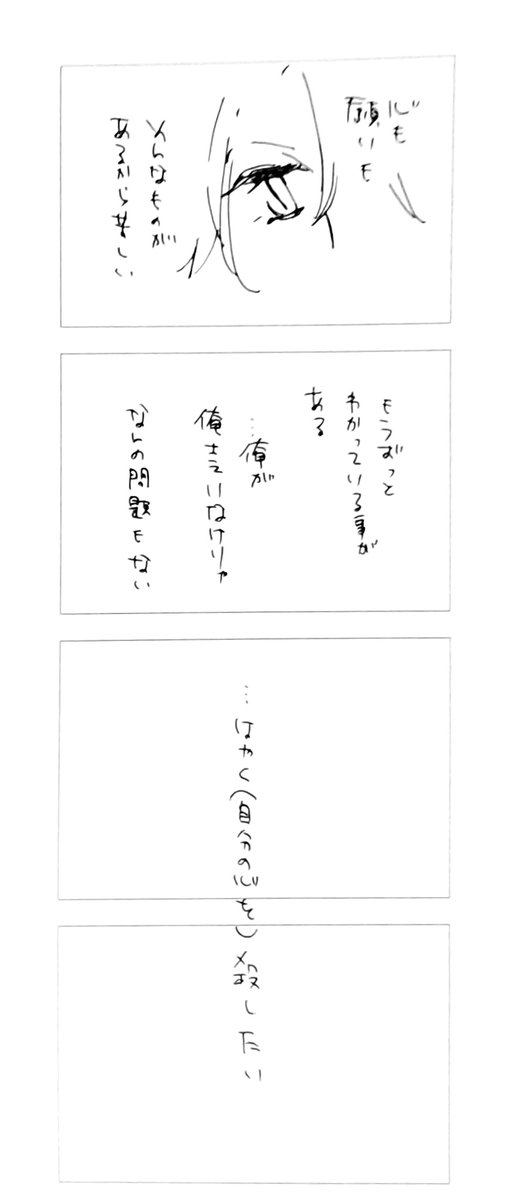 心も
願いも
そんなものが
あるから苦しい
もうずっと
わかっている事が
ある
…俺が
俺さえいなけりゃ
なんの問題もない
…はやく(自分の心を)殺したい